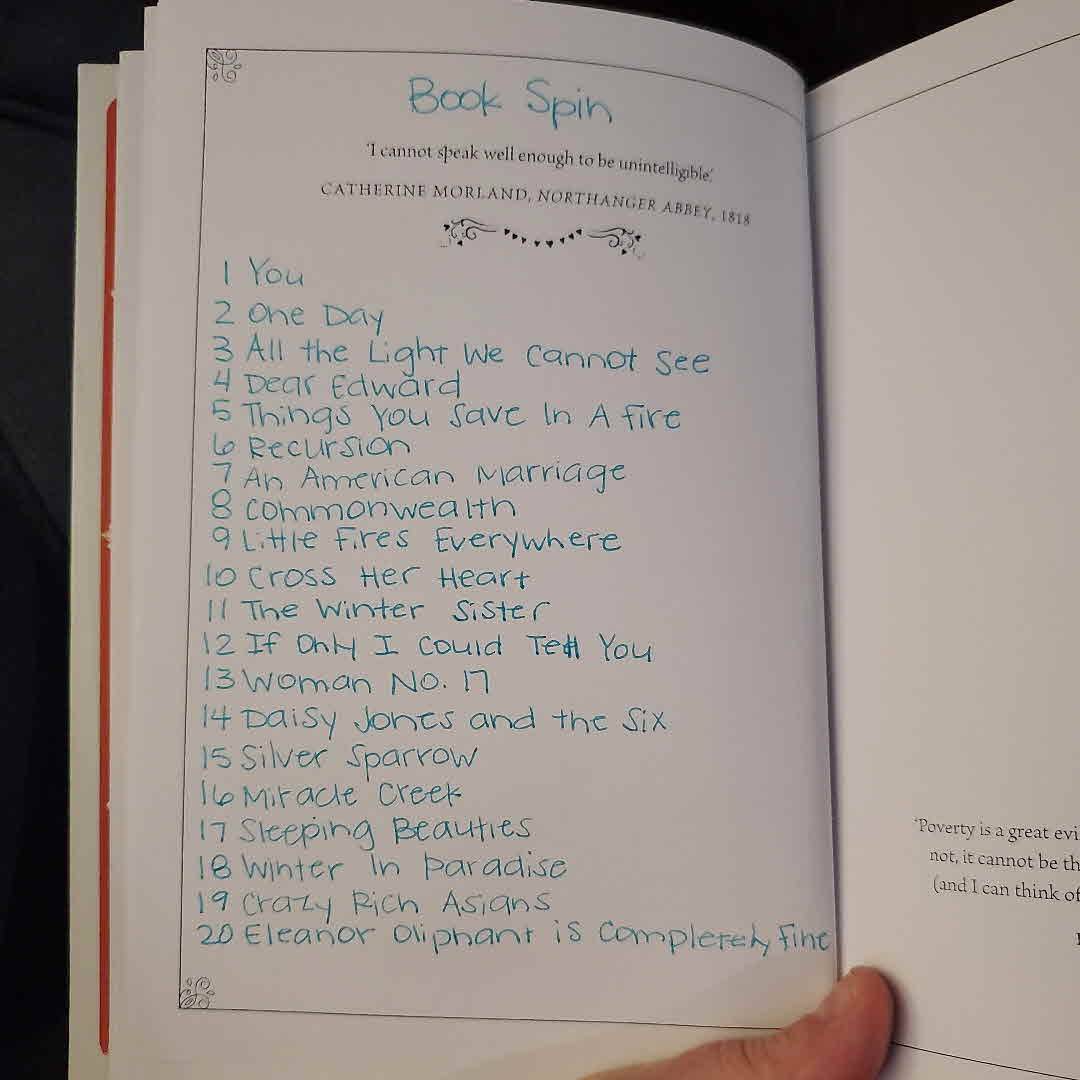 Book Spin
'I cannot speak well enough to be unintelligible.'
CATHERINE MORLAND, NORTHANGER ABBEY, 1818
1 You
2 One Day
3 All the Light We Cannot See
4 Dear Edward
5 Things You Save In A Fire
6 Recursion
7 An American Marriage
8 Commonwealth
9 Little Fires Everywhere
10 Cross Her Heart
11 The Winter Sister
12 If Only I Could Tell You
13 Woman No. 17
14 Daisy Jones and the Six
15 Silver Sparrow
16 Miracle Creek
17 Sleeping Beauties
18 Winter In Paradise
19 Crazy Rich Asians
20 Eleanor Oliphant is Completely Fine
'Poverty is a great
not, it cannot be
(and I can think of